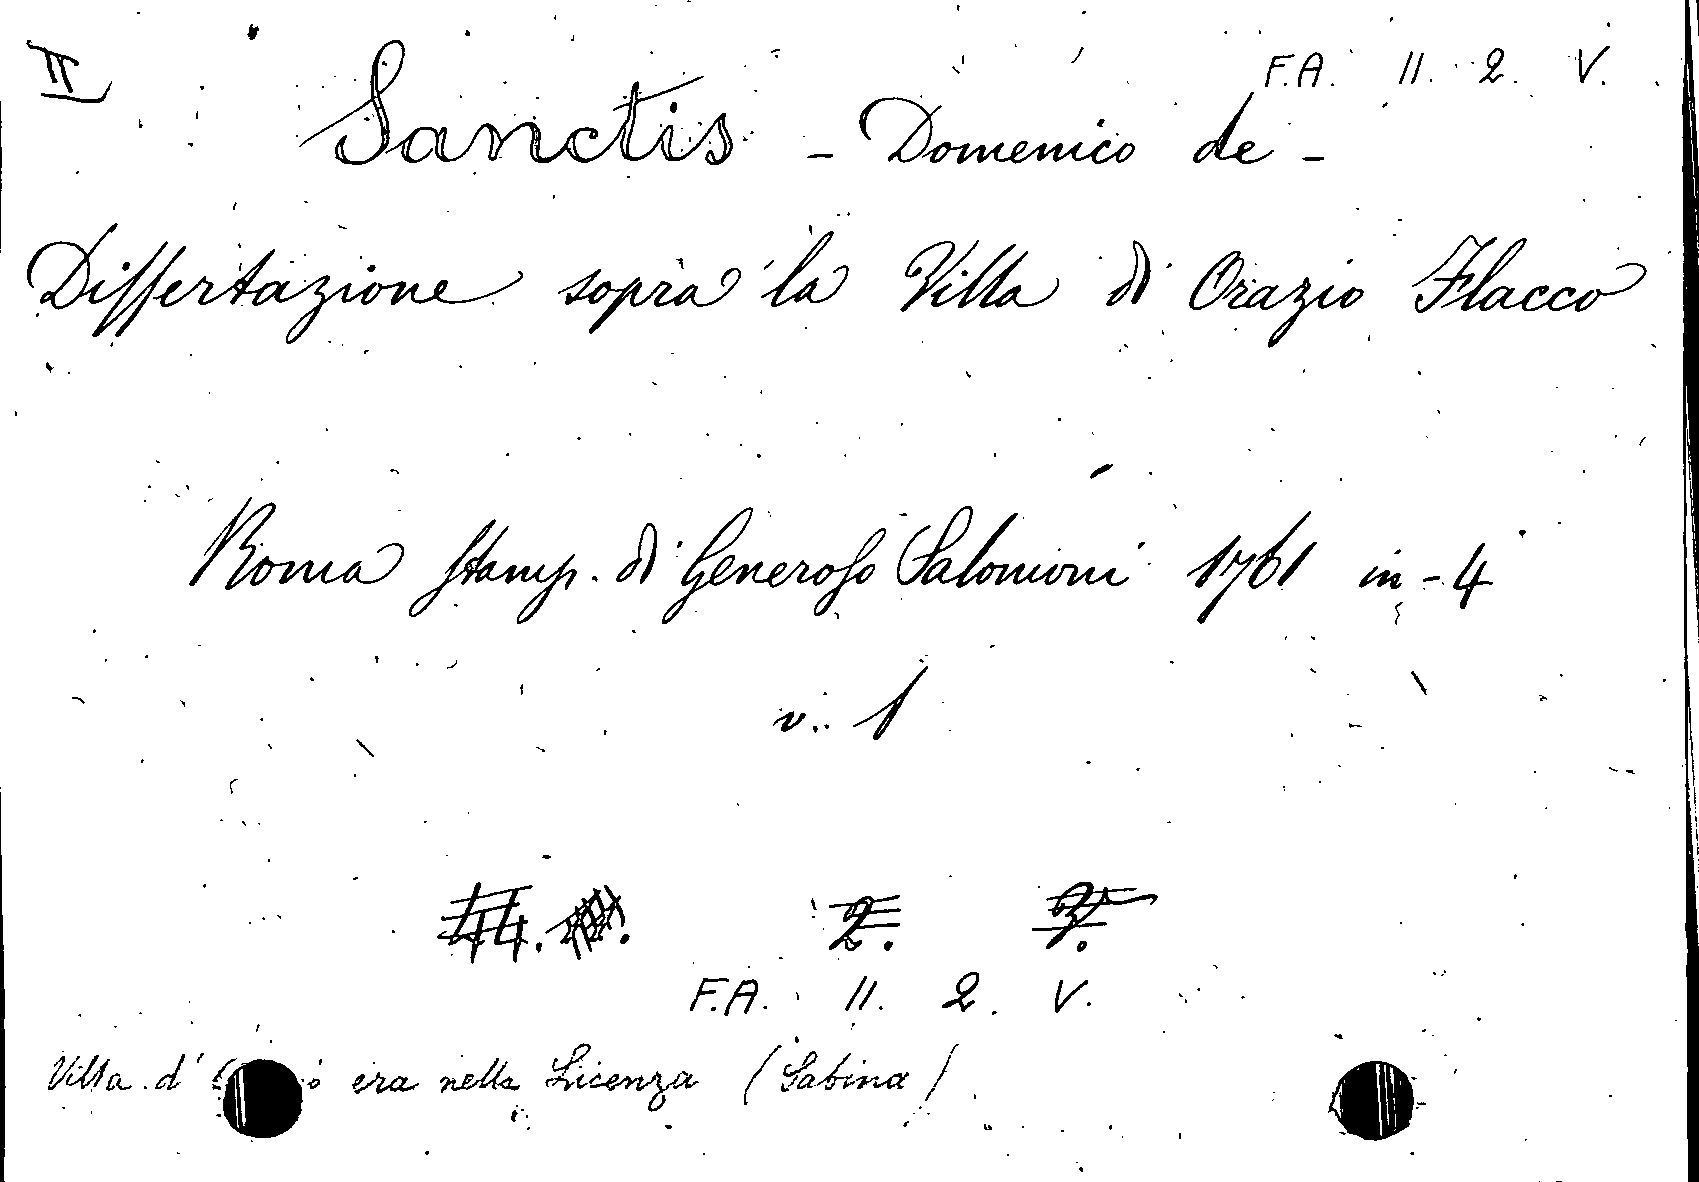 II F.A. II. 2. V.
Sanctis - Domenico de -
Dissertazione sopra la Villa di Orazio Flacco
Roma Stamp. di Generoso Salomoni 1761 in-4
v. 1
F.A. II. 2. V.
Villa d' era nella Licenza (Sabina)